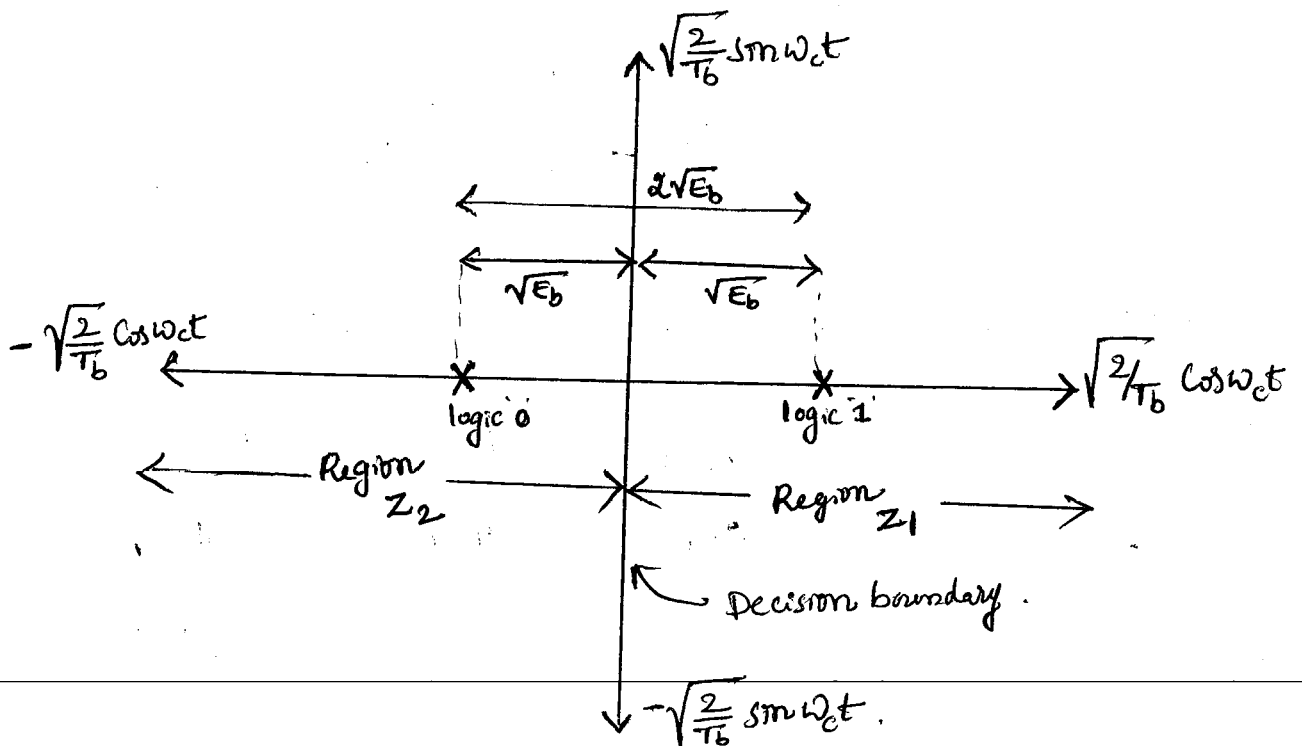 √2/Tb sin ωct
2√Eb
√Eb √Eb
- √2/Tb Cos ωct
√2/Tb Cos ωct
logic '0' logic '1'
Region Z2 Region Z1
Decision boundary.
-√2/Tb sin ωct.